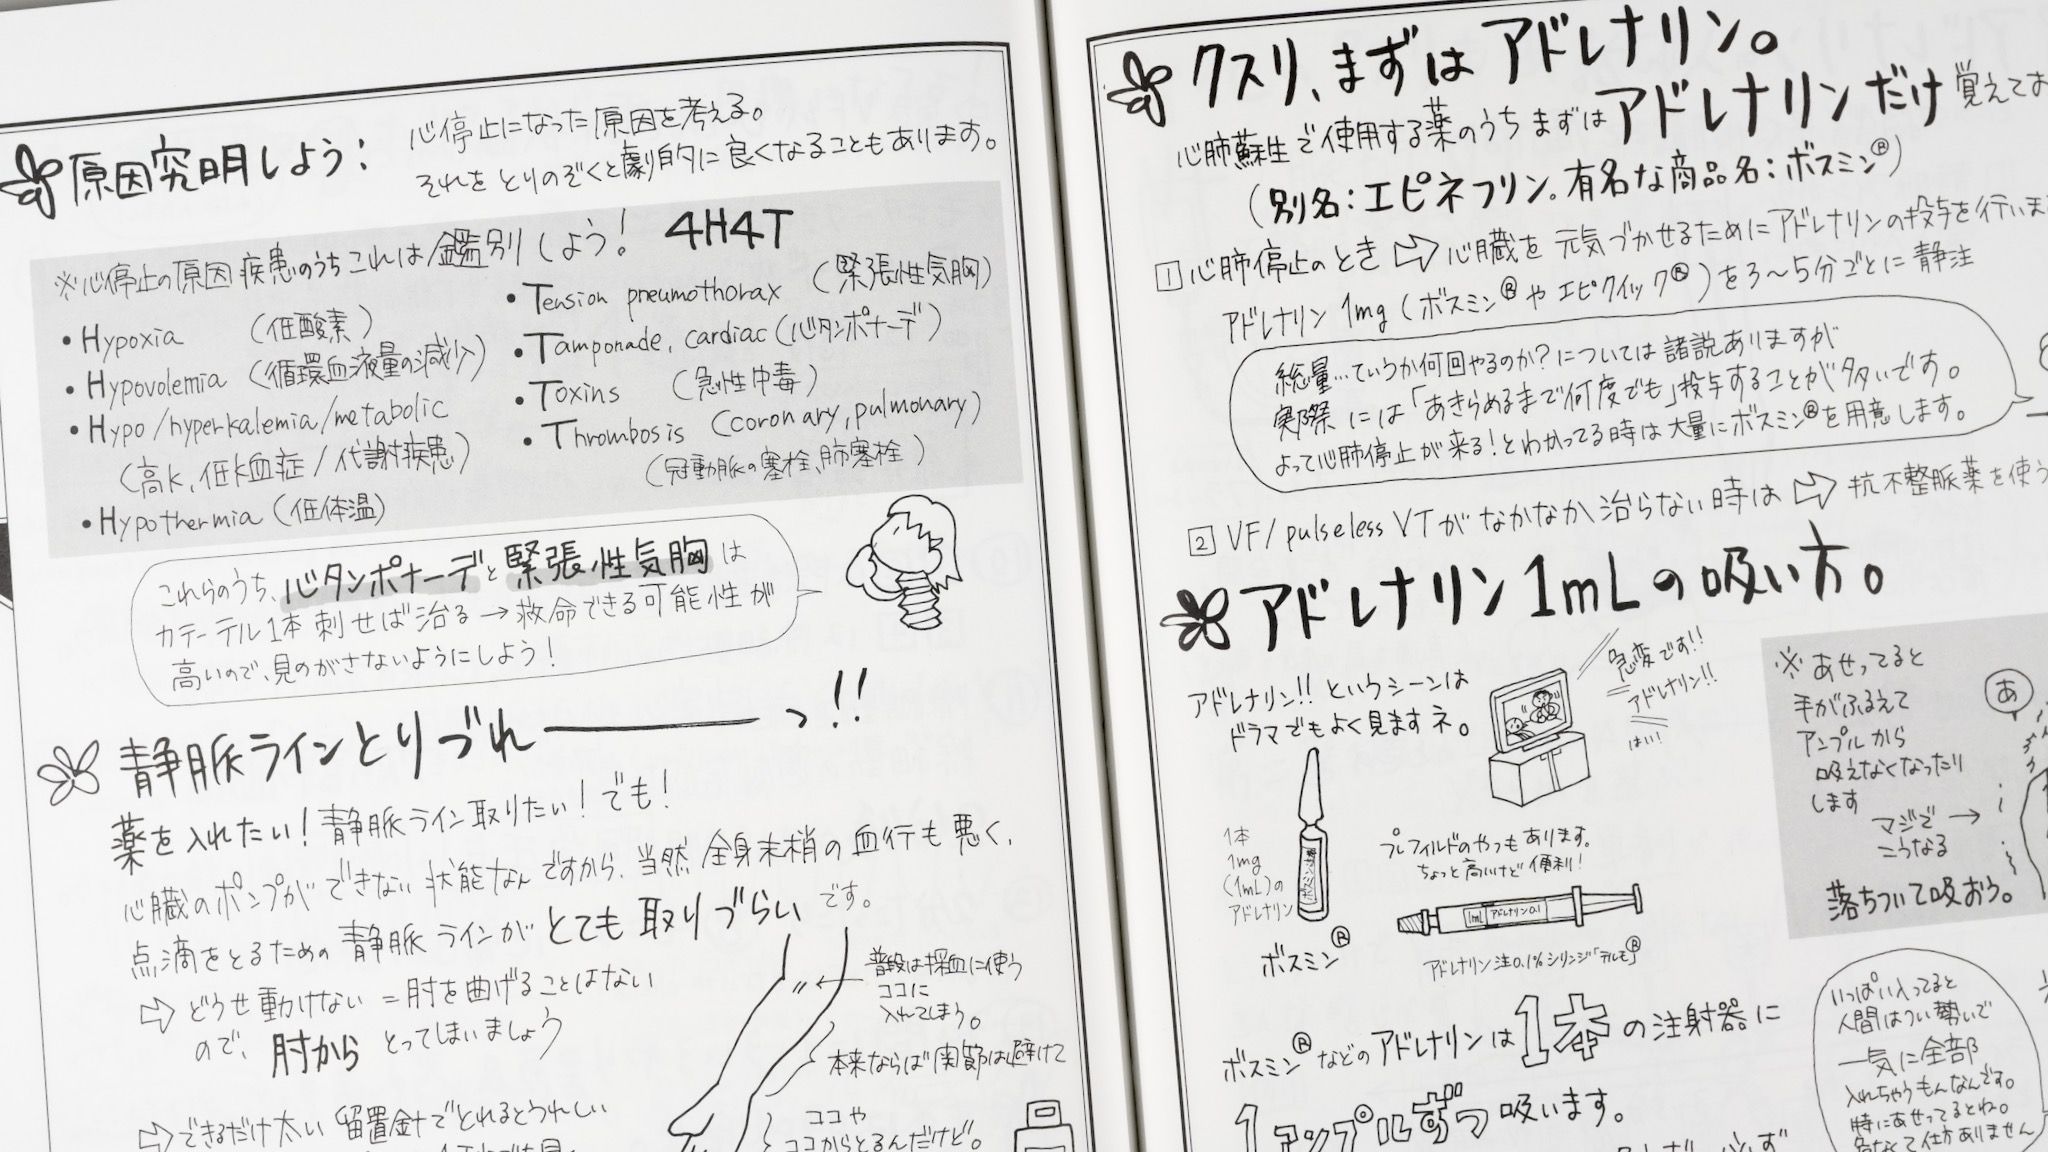 原因究明しよう:
心停止になった原因を考える。
それをとりのぞくと劇的に良くなることもあります。
※心停止の原因疾患のうちこれは鑑別しよう! 4H4T
• Hypoxia (低酸素)
• Hypovolemia (循環血液量の減少)
• Hypo/hyperkalemia/metabolic
(高K,低K血症/代謝疾患)
• Hypothermia (低体温)
• Tension pneumothorax (緊張性気胸)
• Tamponade, cardiac (心タンポナーデ)
• Toxins (急性中毒)
• Thrombosis (coronary, pulmonary)
(冠動脈の塞栓、肺塞栓)
これらのうち、心タンポナーデと緊張性気胸は
カテーテル1本刺せば治る→救命できる可能性が
高いので、見のがさないようにしよう!
静脈ラインとりづれーーーっ!!
薬を入れたい!静脈ライン取りたい!でも!
心臓のポンプができない状能なんですから、当然全身末梢の血行も悪く、
点滴をとるための静脈ラインがとても取りづらいです。
⇨ どうせ動けない=肘を曲げることはない
ので、肘からとってしまいましょう
⇨ できるだけ太い留置針でとれるとうれしい
普段は採血に使う
ココに
入れてしまう。
本来ならば関節は避けて
ココや
ココからとるんだけど。
クスリ、まずはアドレナリン。
心肺蘇生で使用する薬のうちまずはアドレナリンだけ覚えてお
(別名:エピネフリン。有名な商品名:ボスミン®)
1 心肺停止のとき ⇨ 心臓を元気づかせるためにアドレナリンの投与を行いま
アドレナリン1mg(ボスミン®やエピクイック®)を3〜5分ごとに静注
総量…ていうか何回やるのか?については諸説ありますが
実際には「あきらめるまで何度でも」投与することが多いです。
よって心肺停止が来る!とわかってる時は大量にボスミン®を用意します。
2 VF/pulseless VTがなかなか治らない時は ⇨ 抗不整脈薬を使う
アドレナリン1mLの吸い方。
アドレナリン!!というシーンは
ドラマでもよく見ますネ。
急変です!!
アドレナリン!!
はい!
1本
1mg
(1mL)の
アドレナリン
ボスミン®
プレフィルドのやつもあります。
ちょっと高いけど便利!
1mL アドレナリン0.1
アドレナリン注0.1%シリンジ「テルモ」®
※あせってると
手がふるえて
アンプルから
吸えなくなったり
します
マジで→
こうなる
落ちついて吸おう。
あ
ボスミン®などのアドレナリンは1本の注射器に
1アンプルずつ吸います。
いっぱい入ってると
人間はつい勢いで
一気に全部
入れちゃうもんなんです。
特にあせってるとね。